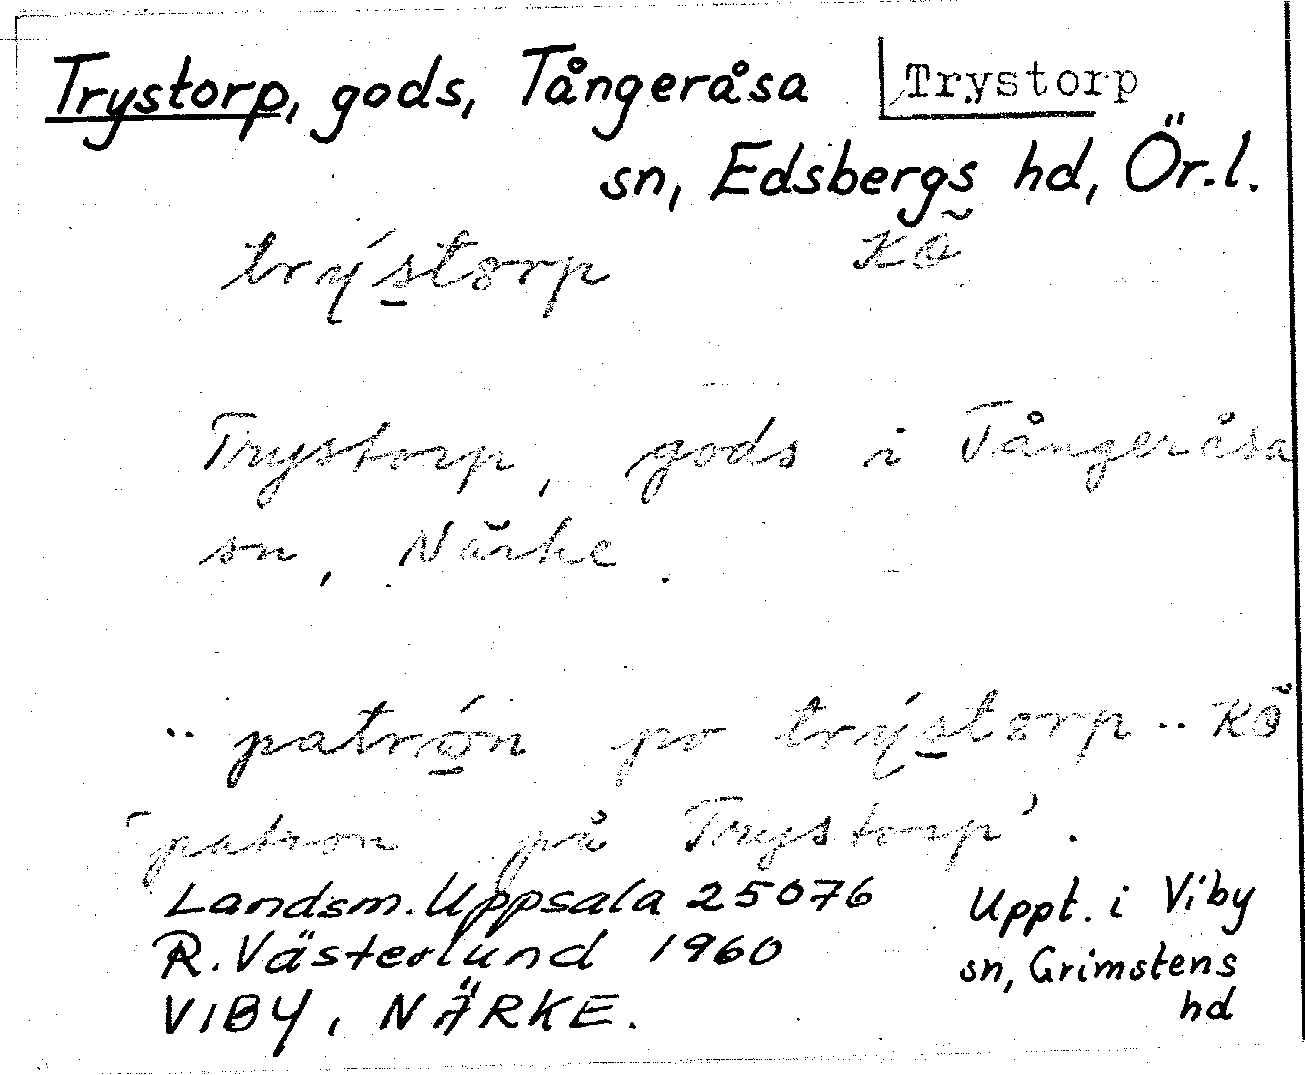 Trystorp, gods, Tångeråsa
Trystorp
sn, Edsbergs hd, Ör.l.
trýstorp KÖ
Trystorp, gods i Tångeråsa
sn, Närke.
.. patrón po trýstorp .. KÖ
'patron på Trystorp'.
Landsm. Uppsala 25076
R. Västerlund 1960
VIBY, NÄRKE.
Uppt. i Viby
sn, Grimstens
hd